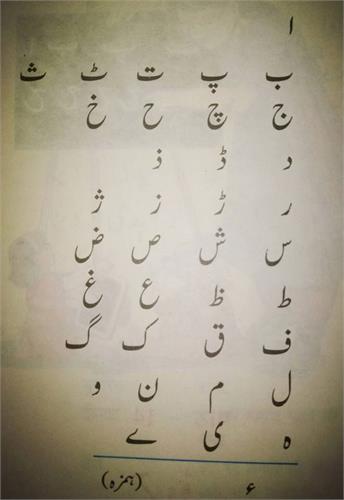 ا
ب پ ت ٹ ث
ج چ ح خ
د ڈ ذ
ر ڑ ز ژ
س ش ص ض
ط ظ ع غ
ف ق ک گ
ل م ن و
ہ ی ے
ء (ہمزہ)